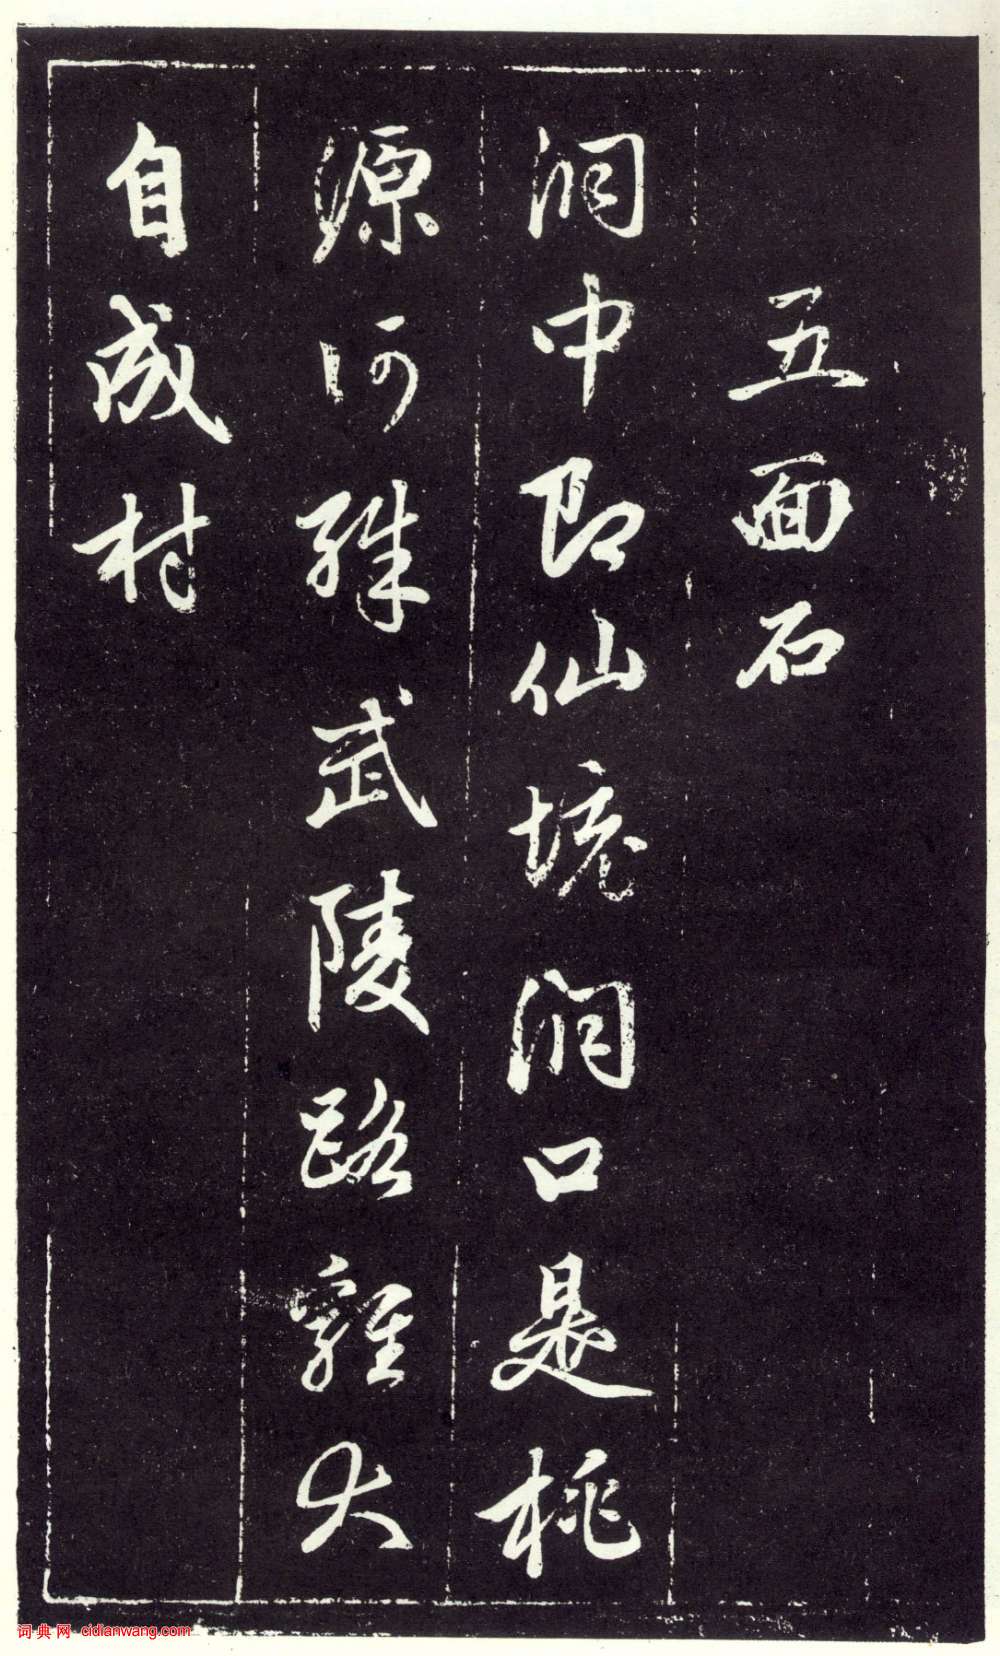 五面石
洞中即仙境洞口是桃
源何殊武陵路雞犬
自成村
词典网 cidianwang.com